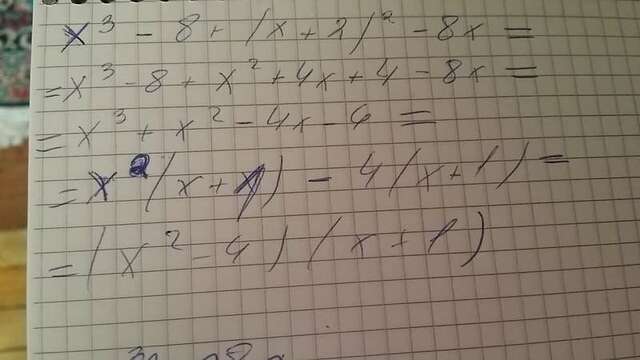 x³ - 8 + (x + 2)² - 8x =
= x³ - 8 + x² + 4x + 4 - 8x =
= x³ + x² - 4x - 4 =
= x²(x + 1) - 4(x + 1) =
= (x² - 4)(x + 1)